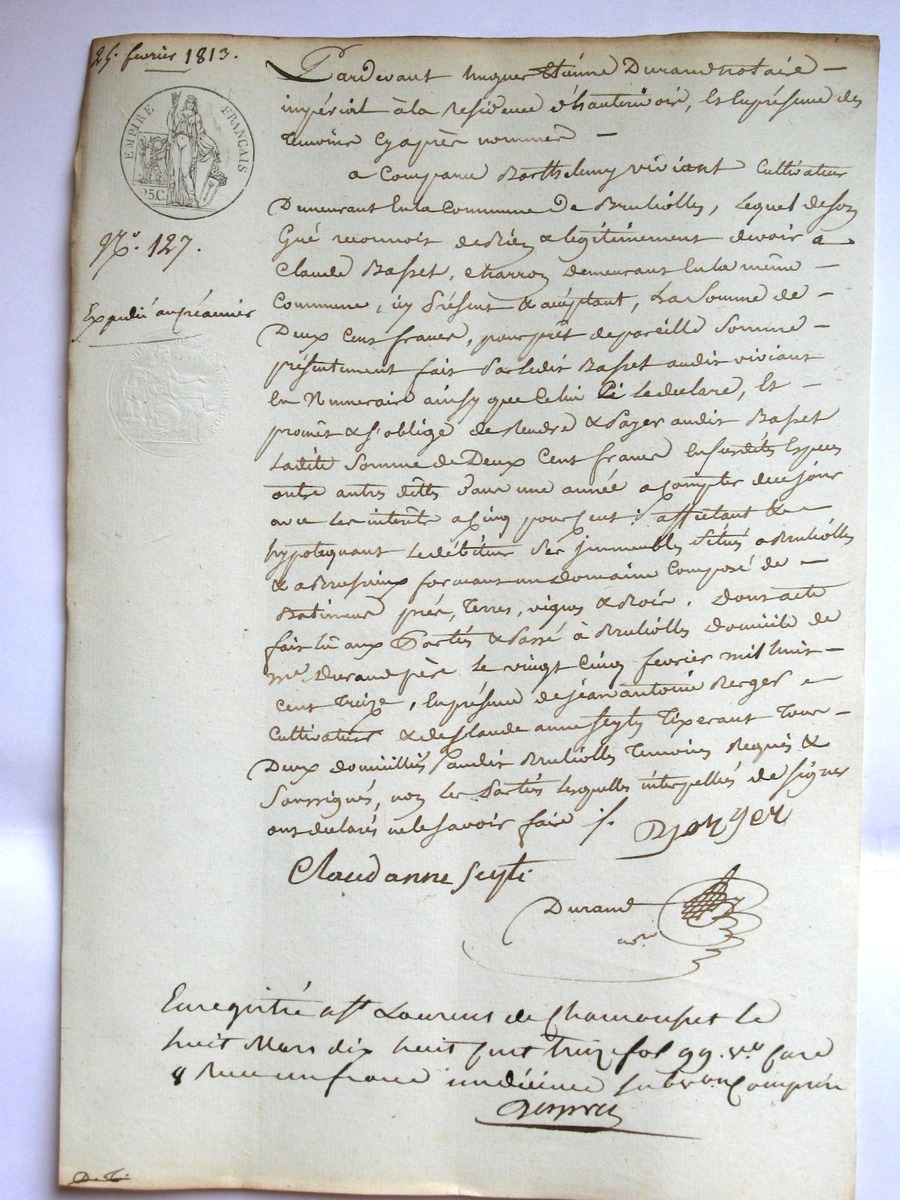 25. février 1813.
EMPIRE FRANÇAIS
25C.
N.o 127.
Expédié au créancier
Pardevant hugues Etienne Durand notaire
impérial à la residence d'hauterivoire, Et En présence des
temoins Cy après nommés
a Comparu Barthelemy viviant Cultivateur
Demeurant En la Commune De Brulliolles, lequel de son
Gré reconnoit de Bien & legitimement devoir à
Claude Basset, charron demeurant En la même
Commune, icy Présent & acceptant, La Somme de
Deux Cent francs, pour prêt de pareille Somme
présentement fait Par ledit Basset audit viviant
En Numeraire ainsy que Celui Ci le declare, Et
promet & S'oblige de Rendre & Payer audit Basset
Ladite Somme de Deux Cent francs En susdites Especes
outre autres dettes dans une année a Compter de ce jour
avec les interêts a Cinq pour Cent : affectant &
hypotequant le débiteur Ses immeubles Situés a Brulliolles
& a Brussieux formant un domaine Composé de
Batiments prés, terres, vignes & Bois. Dont acte
fait lû aux Parties & Passé à Brulliolles domicile de
Me. Durand père Le vingt Cinq février mil huit
Cent Treize, En présence de jean antoine Berger
Cultivateur & de Claude anne Seyty Tixerant Tous
Deux domiciliés audit Brulliolles Temoins Requis &
Soussignés, non les Parties lesquelles interpellées de signer
ont declarés ne le Savoir faire /.
Berger
Claud anne Seyti
Durand
nore
Enregistré a St Laurent de Chamousset le
huit Mars dix huit cent treize fol 99 v.o Case
8 Recu un franc un décime subvon Comprise